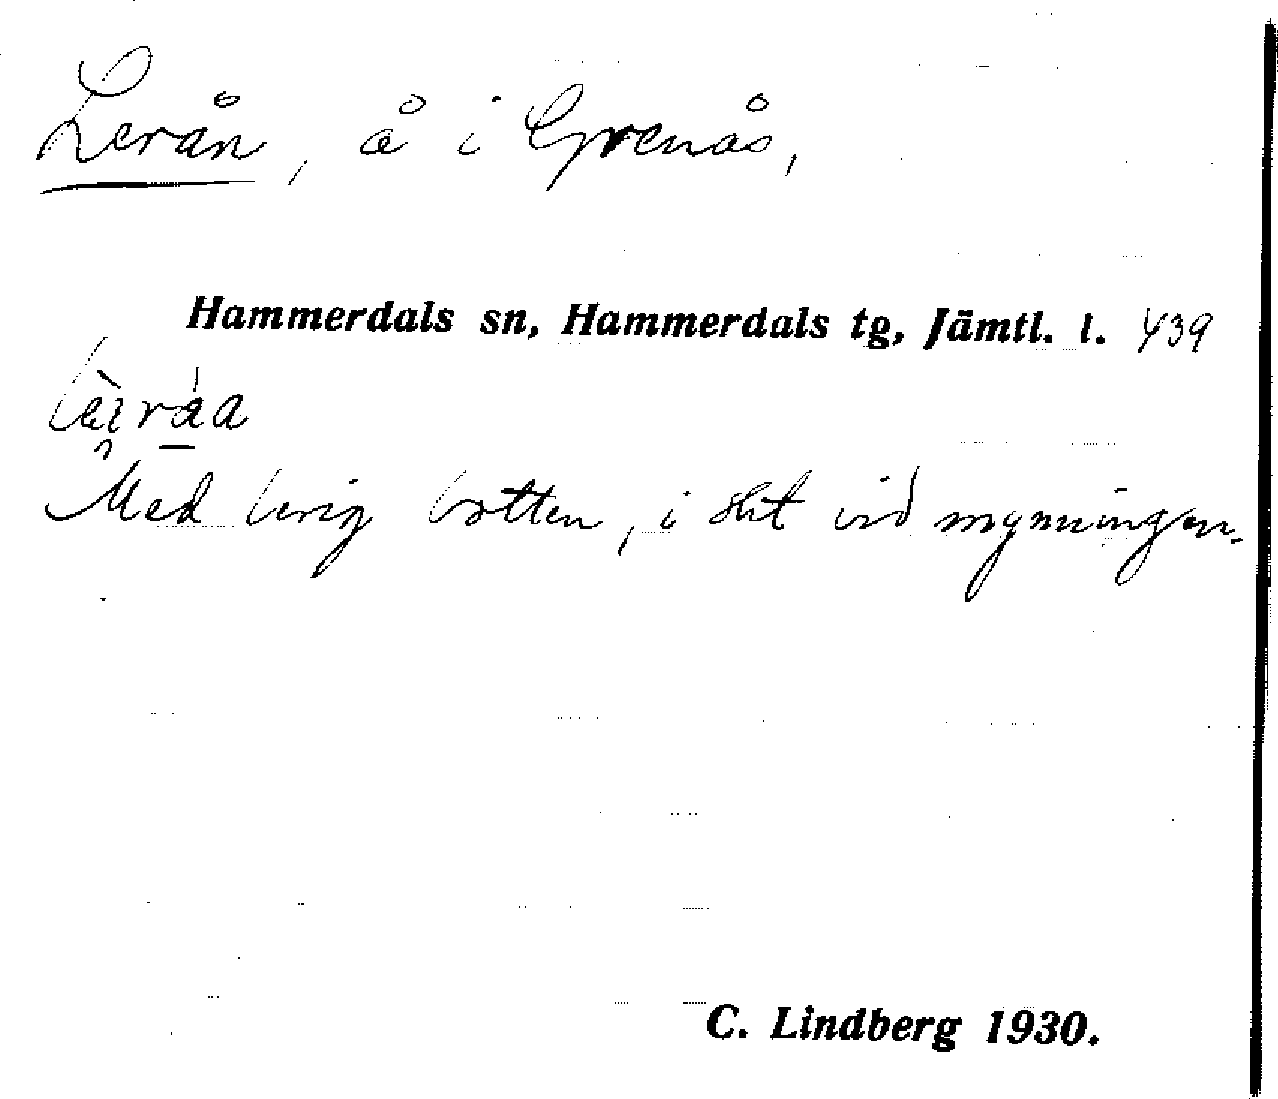 Lerån, å i Grenås,
Hammerdals sn, Hammerdals tg, Jämtl. l. 439
Med lerig botten, i sht vid mynningen.
C. Lindberg 1930.